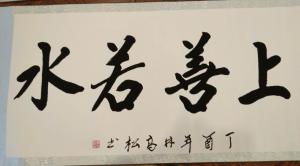 上善若水
丁酉年林高松书